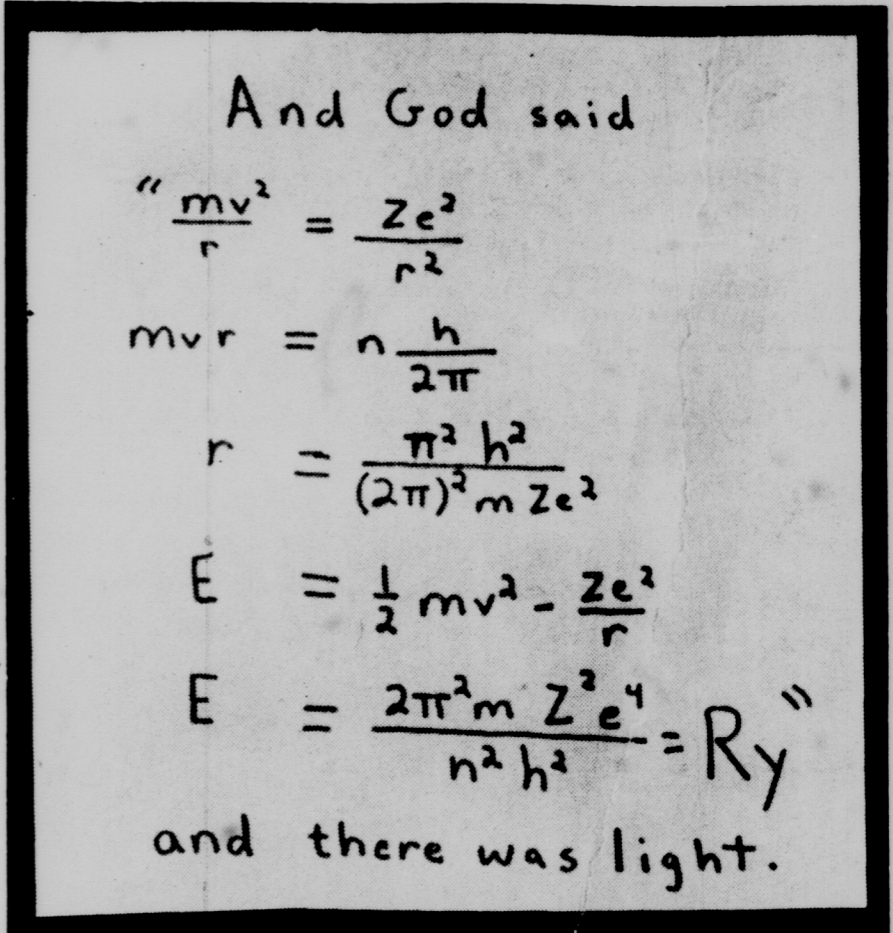 And God said
“ mv²/r = Ze²/r²
mvr = n h/2π
r = π² h²/(2π)² m Ze²
E = ½ mv² - Ze²/r
E = 2π²m Z²e⁴/n² h² = Ry ”
and there was light.